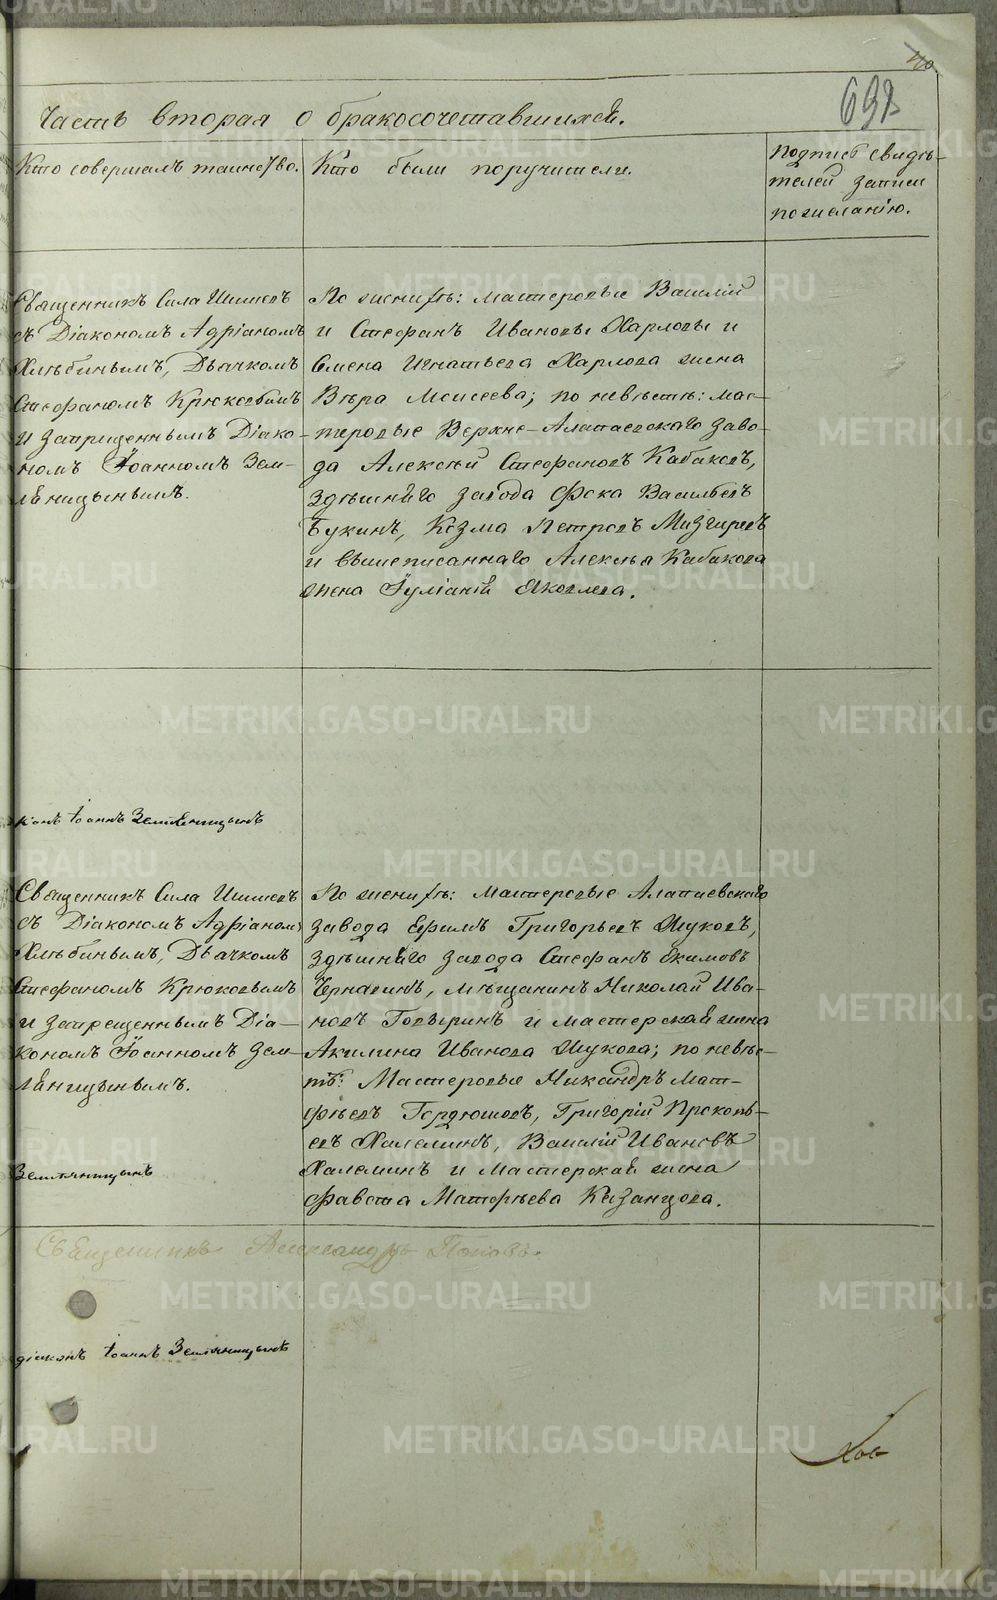 40
698
Часть вторая о бракосочетавшихся.
Кто совершалъ таинство.
Кто были поручители.
Подпись свидѣ-
телей записи
по желанію.
Священникъ Сила Шишевъ
съ Діакономъ Адріаномъ
Хлѣбинымъ, Дьячкомъ
Стефаномъ Крюковымъ
и запрещеннымъ Діако-
номъ Іоанномъ Зем-
лѧницынымъ.
По женихѣ: мастеровые Василій
и Стефанъ Ивановы Харловы и
Семена Игнатьева Харлова жена
Вѣра Моисеева; по невѣстѣ: мас-
теровые Верхне-Алапаевскаго заво-
да Алексѣй Стефановъ Кабаковъ,
здѣшнѧго завода Фока Васильевъ
Букинъ, Козма Петровъ Мизгиревъ
и вышеписаннаго Алексѣя Кабакова
жена Іуліанія Яковлева.
Іоаннъ Землѧницынъ
Священникъ Сила Шишевъ
съ Діакономъ Адріаномъ
Хлѣбинымъ, Дьячкомъ
Стефаномъ Крюковымъ
и запрещеннымъ Діа-
кономъ Іоанномъ Зем-
лѧницынымъ.
По женихѣ: мастеровые Алапаевскаго
завода Ефимъ Григорьевъ Жуковъ,
здѣшнѧго завода Стефанъ Екимовъ
Чернавинъ, мѣщанинъ Николай Ива-
новъ Говыринъ и мастерская жена
Акилина Иванова Жукова; по невѣс-
тѣ: Мастеровые Никандръ Мат-
фѣевъ Гордюшовъ, Григорій Прокопь-
евъ Халеминъ, Василій Ивановъ
Халеминъ и мастерская жена
Фавста Матфѣева Казанцова.
Землѧницынъ
Священникъ Александръ Поповъ.
діаконъ Іоаннъ Землѧницынъ
METRIKI.GASO-URAL.RU